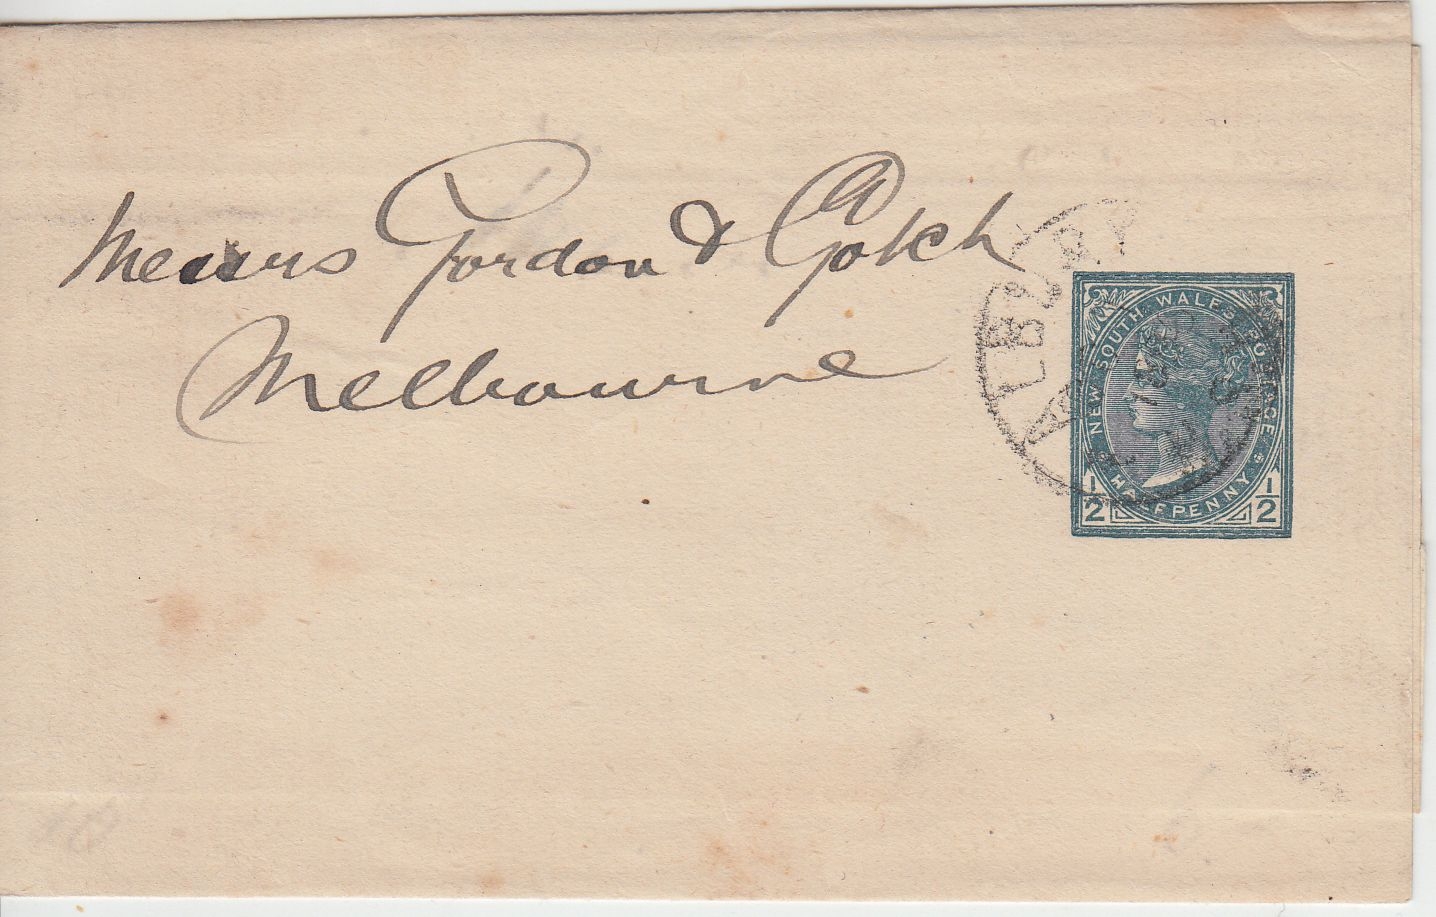 Messrs Gordon & Gotch
Melbourne
ALBURY
NEW SOUTH WALES POSTAGE
HALFPENNY
1/2 1/2